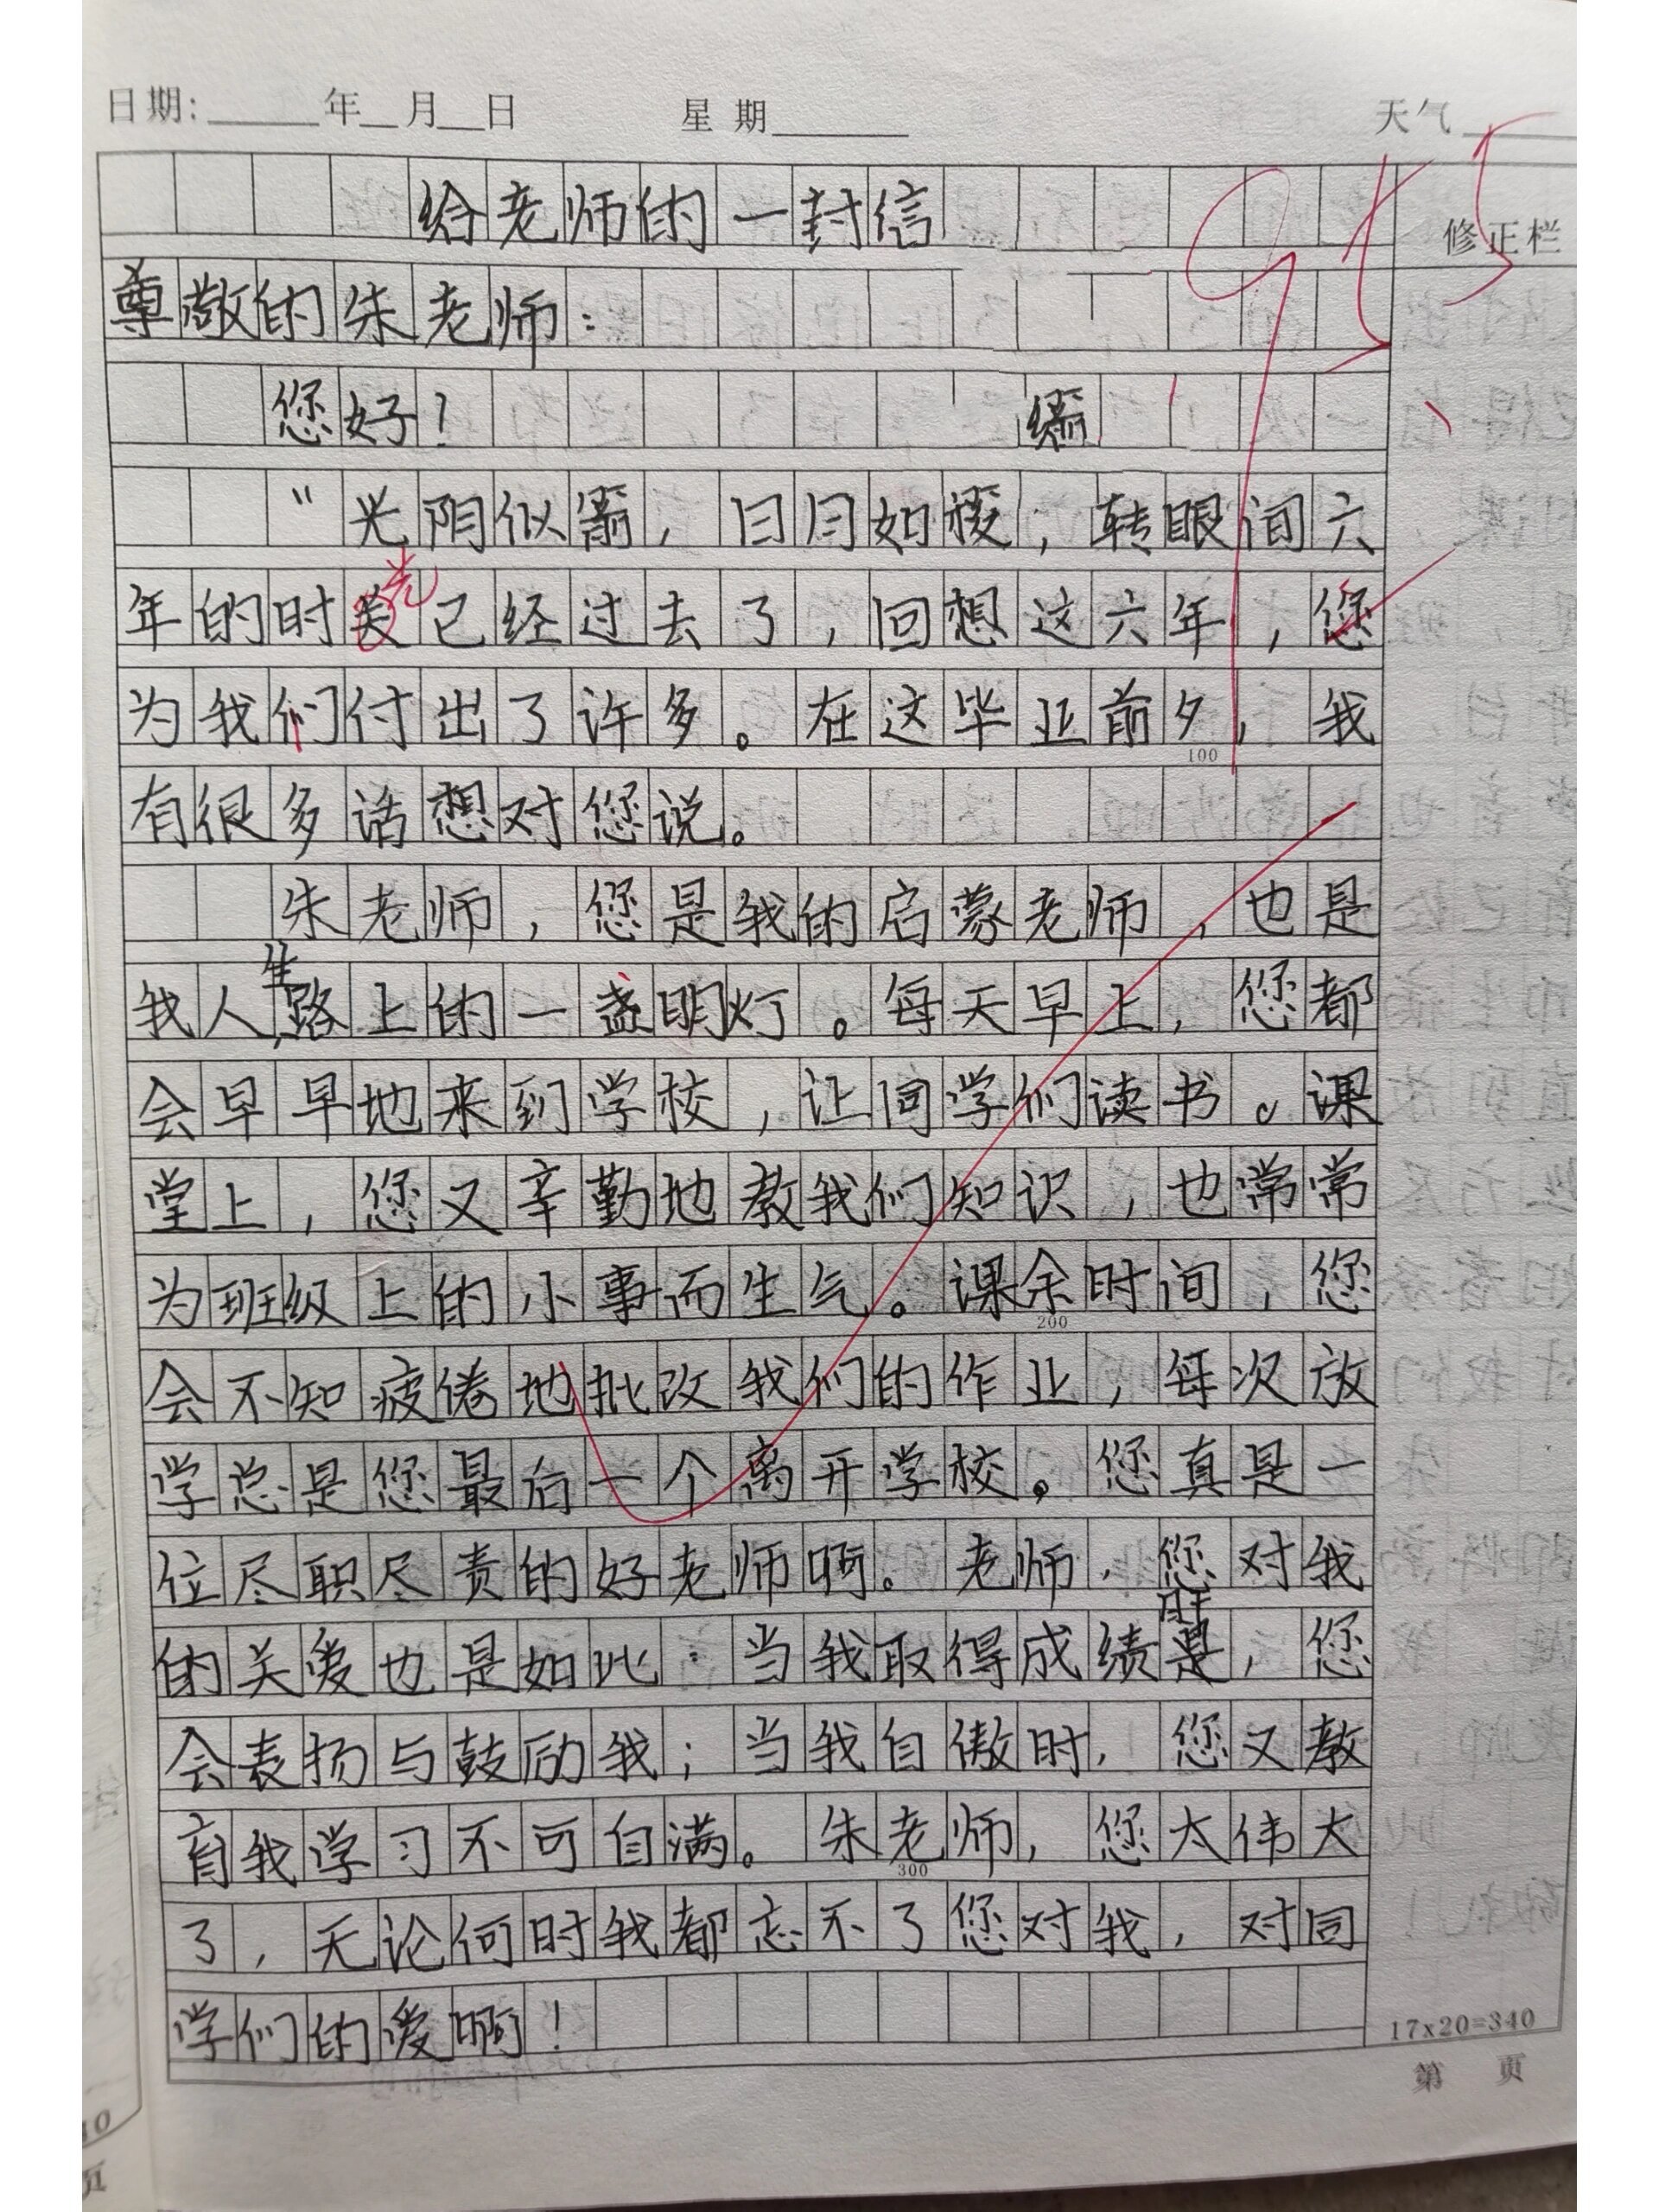 日期：____年__月__日 星期____ 天气____
95
修正栏
给老师的一封信
尊敬的朱老师：
您好！
"光阴似箭，日月如梭，转眼间六
年的时光已经过去了，回想这六年，您
为我们付出了许多。在这毕业前夕，我
100
有很多话想对您说。
朱老师，您是我的启蒙老师，也是
我人生路上的一盏明灯。每天早上，您都
会早早地来到学校，让同学们读书。课
堂上，您又辛勤地教我们知识，也常常
为班级上的小事而生气。课余时间，您
200
会不知疲倦地批改我们的作业，每次放
学总是您最后一个离开学校。您真是一
位尽职尽责的好老师啊。老师，您对我
的关爱也是如此：当我取得成绩时，您
会表扬与鼓励我；当我自傲时，您又教
育我学习不可自满。朱老师，您太伟大
300
了，无论何时我都忘不了您对我，对同
学们的爱啊！
17x20=340
第 页